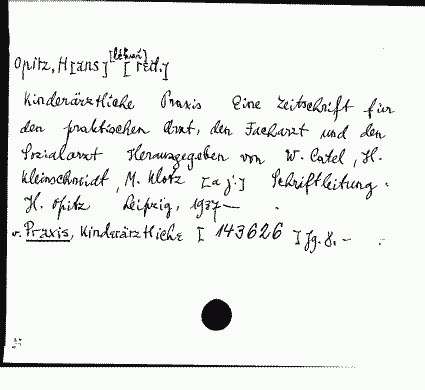 Opitz, H[ans] [red.]
Kinderärztliche Praxis Eine Zeitschrift für
den praktischen Arzt, den Facharzt und den
Sozialarzt Herausgegeben von W. Catel, H.
Kleinschmidt, M. Klotz [a j.] Schriftleitung:
H. Opitz Leipzig, 1937—
v. Praxis, Kinderärztliche [143626] Jg. 8.—